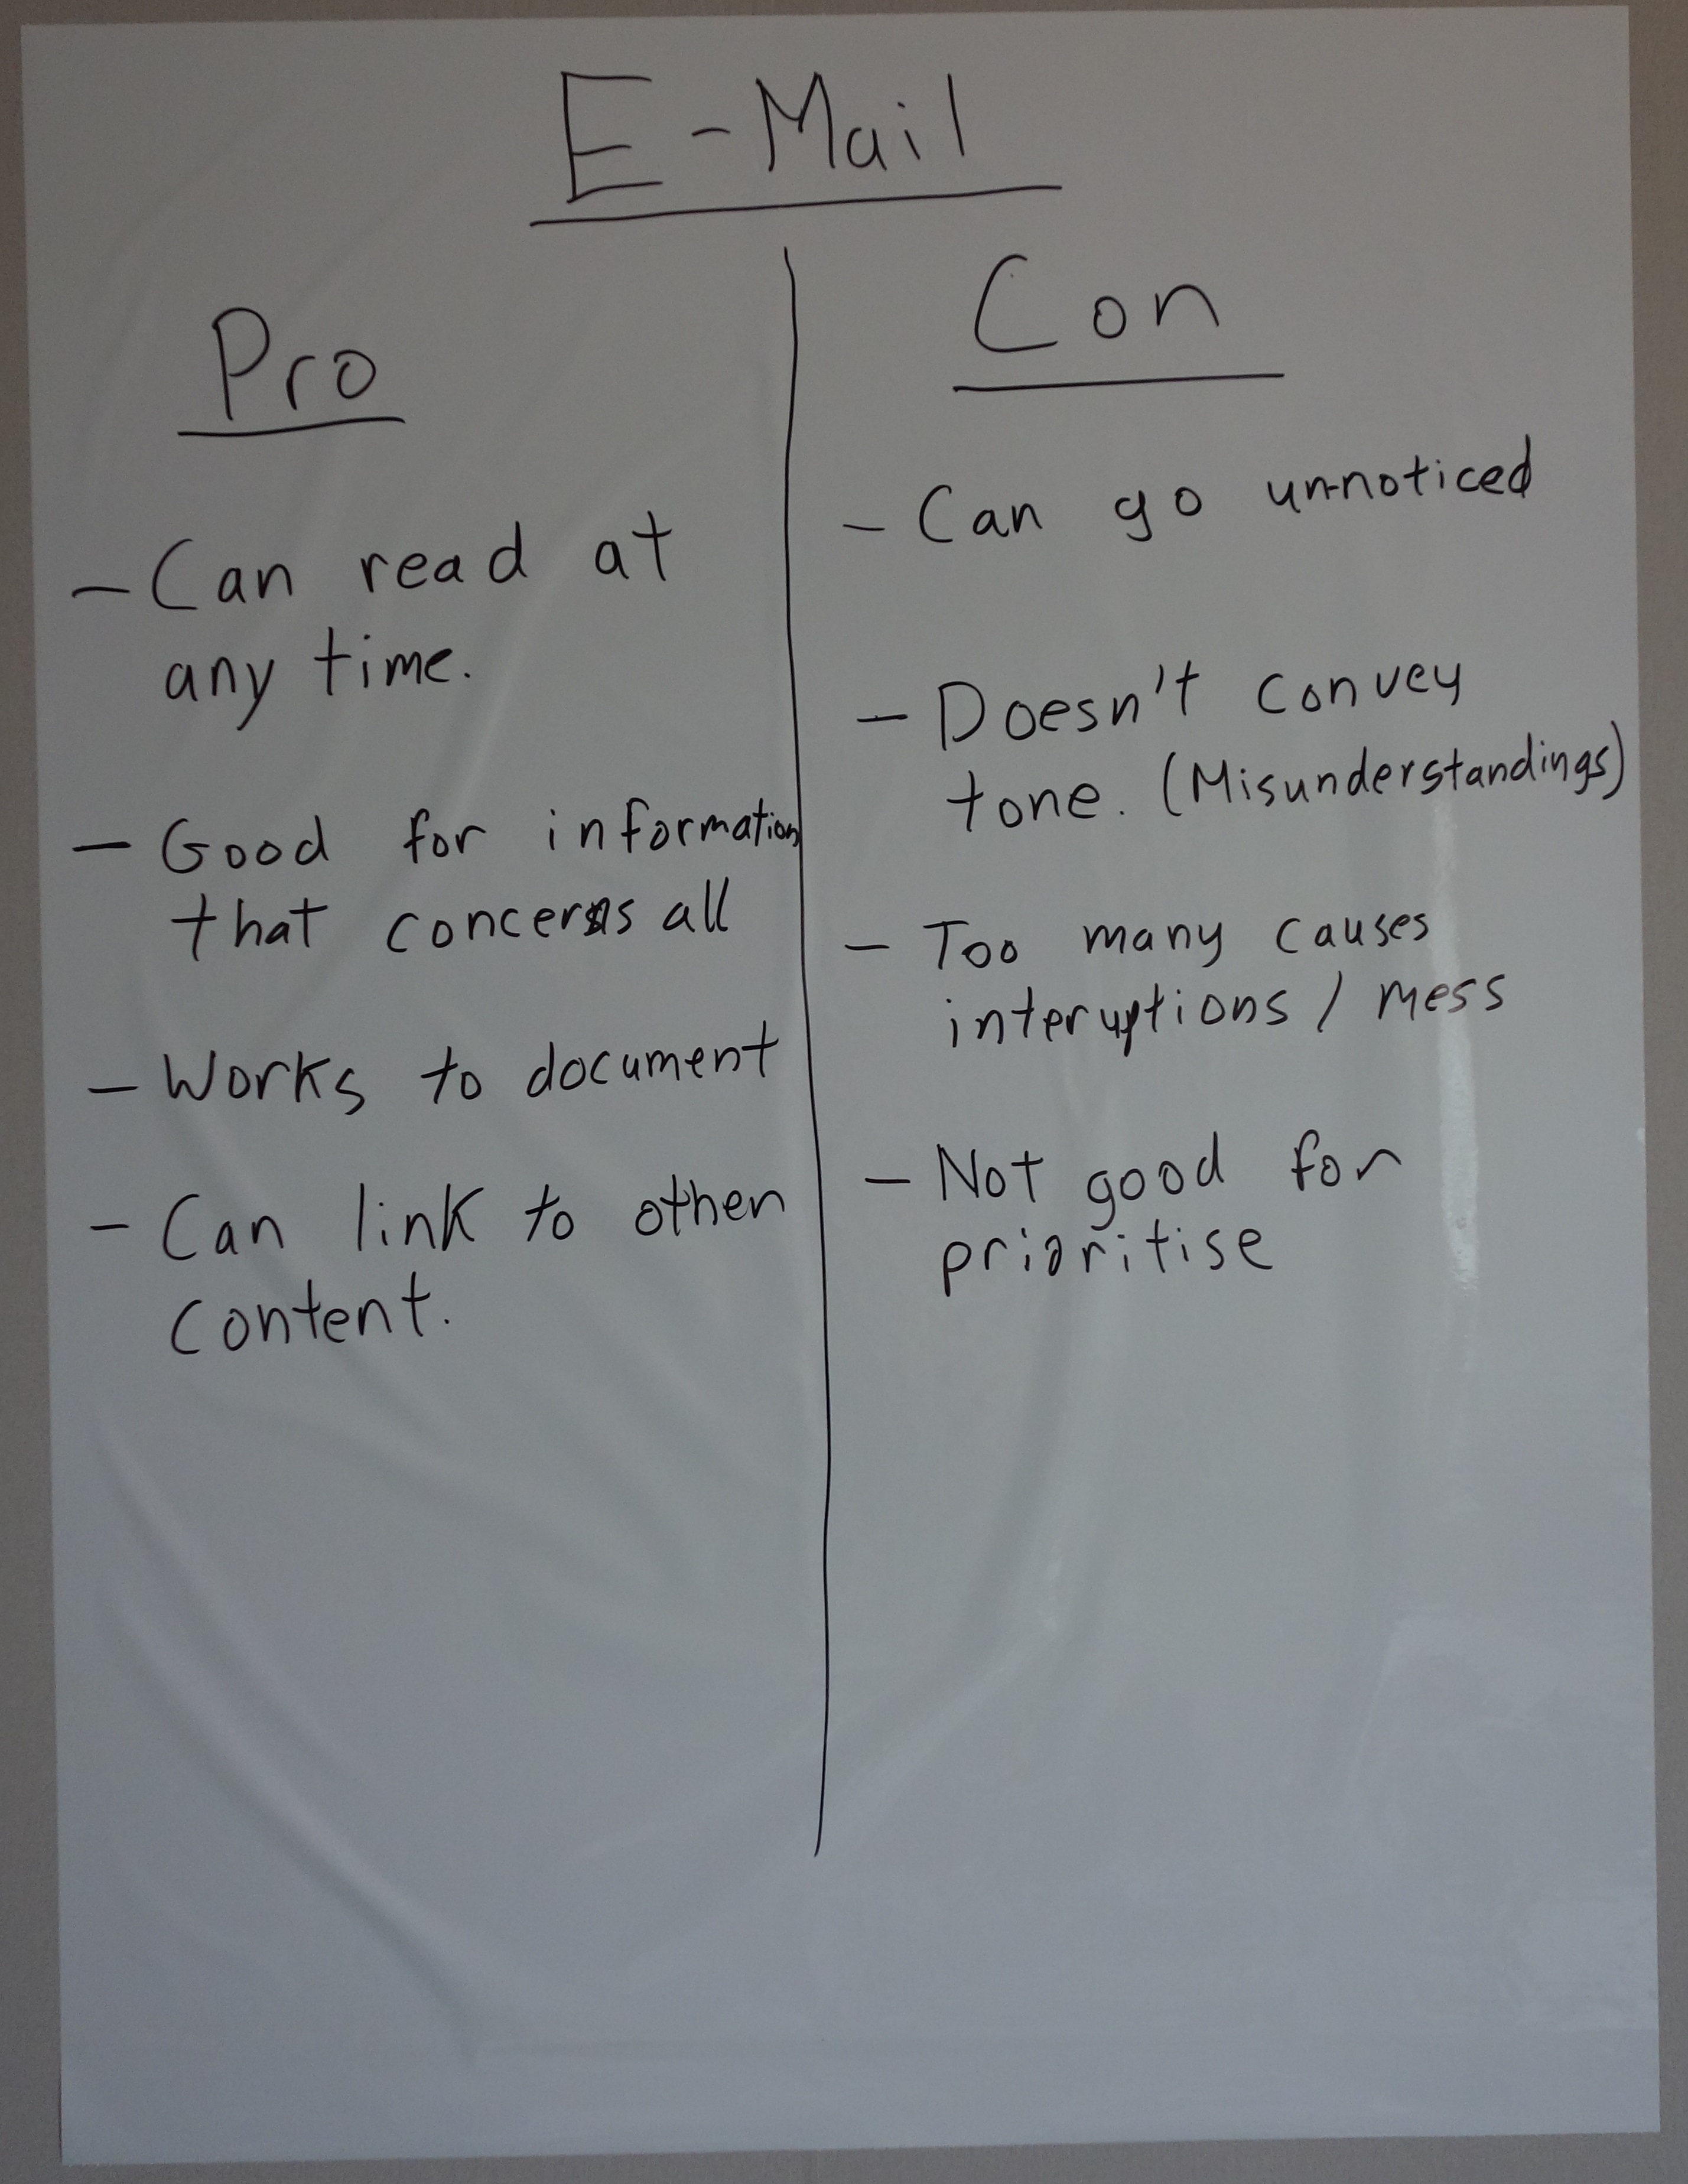 E-Mail
Pro
- Can read at
any time.
- Good for information
that concerns all
- Works to document
- Can link to other
content.
Con
- Can go un-noticed
- Doesn't convey
tone. (Misunderstandings)
- Too many causes
interuptions / mess
- Not good for
prioritise